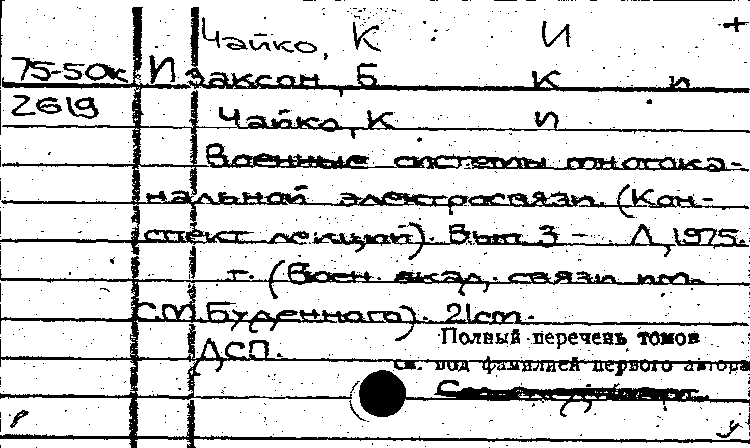 Чайко, К И +
75-50к Изаксон, Б К и
2619 Чайко, К И
Военные системы многока-
нальной электросвязи. (Кон-
спект лекций). Вып. 3 - Л, 1975.
т. (Воен. акад. связи им.
С.М. Буденного). 21cm.
Полный перечень томов
ДСП.
см. под фамилией первого автора
р у